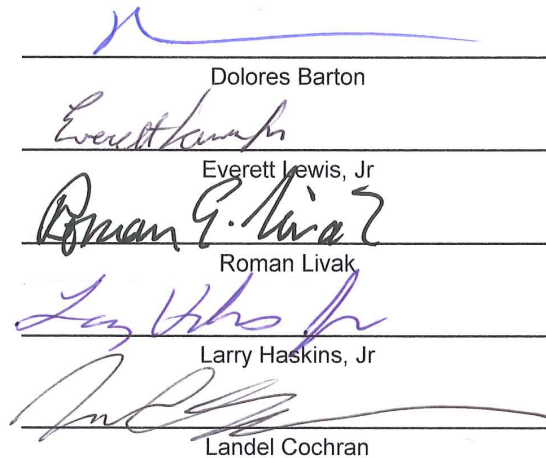 Dolores Barton
Everett Lewis Jr
Everett Lewis, Jr
Roman G. Livak
Roman Livak
Larry Haskins, Jr
Landel Cochran